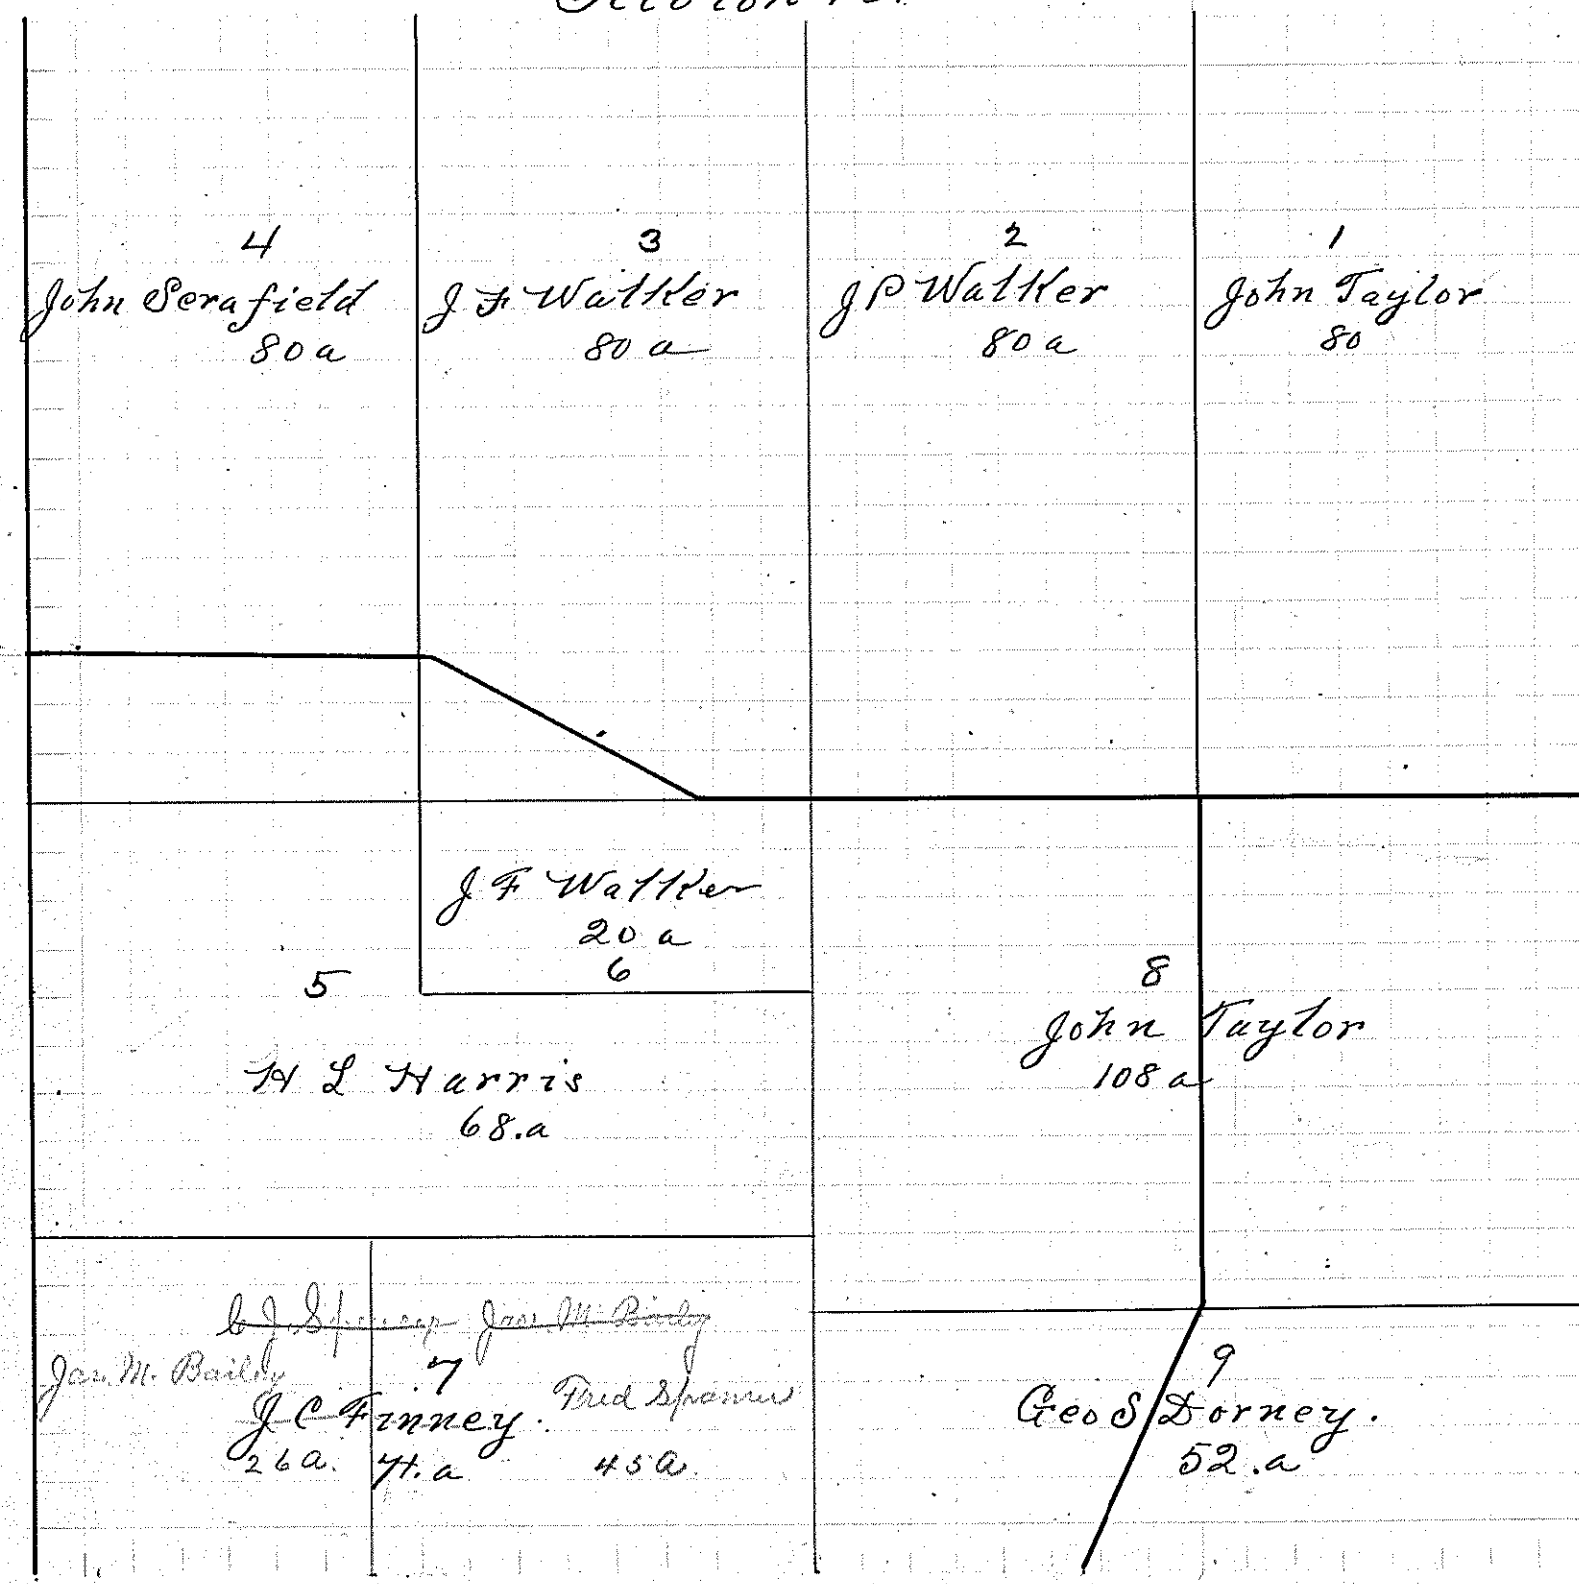 4
John Serafield
80 a
3
J F Walker
80 a
2
J P Walker
80 a
1
John Taylor
80
J F Walker
20 a
6
5
H L Harris
68.a
8
John Taylor
108 a
C J. Jas. M. Bailey
Jas. M. Bailey
7
J C Finney.
Fred
26 a. 71.a 45 a.
9
Geo S Dorney.
52.a